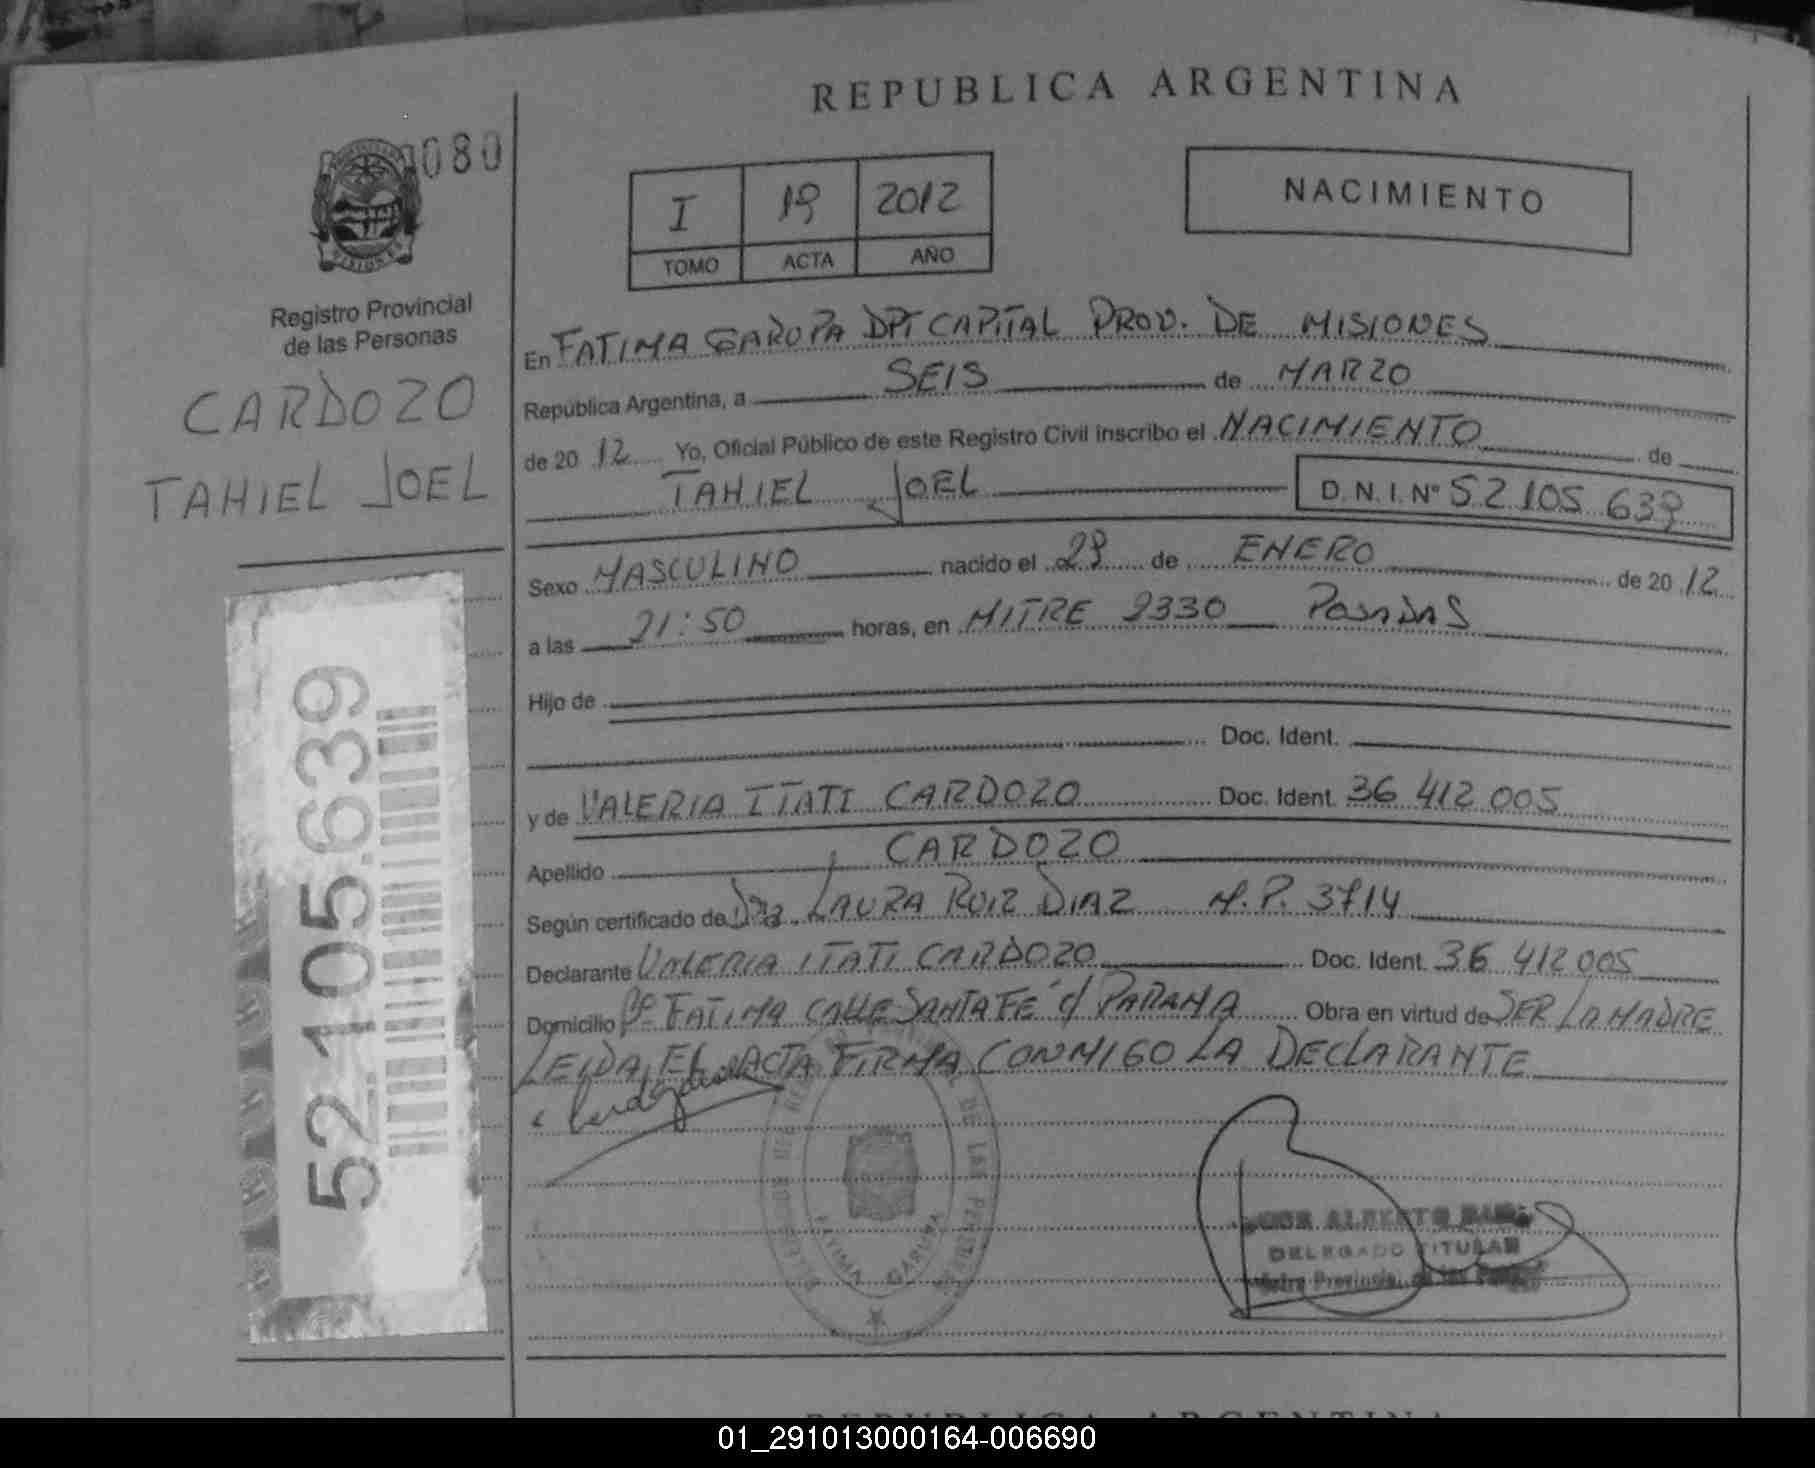 REPUBLICA ARGENTINA
080
I 19 2012
TOMO ACTA AÑO
NACIMIENTO
Registro Provincial
de las Personas
CARDOZO
TAHIEL JOEL
52.105.639
En FATIMA GARUPA DPT CAPITAL PROV. DE MISIONES
República Argentina, a SEIS de MARZO
de 20 12 Yo, Oficial Público de este Registro Civil inscribo el NACIMIENTO de
TAHIEL JOEL D.N.I. Nº 52 105 639
Sexo MASCULINO nacido el 29 de ENERO de 20 12
a las 21:50 horas, en MITRE 2330 POSADAS
Hijo de
Doc. Ident.
y de VALERIA ITATI CARDOZO Doc. Ident. 36 412 005
Apellido CARDOZO
Según certificado de Dra LAURA RUIZ DIAZ M.P. 3714
Declarante VALERIA ITATI CARDOZO Doc. Ident. 36 412 005
Domicilio Bº FATIMA CALLE SANTA FE c/ PARANA Obra en virtud de SER LA MADRE
LEIDA EL ACTA FIRMA CONMIGO LA DECLARANTE
DE LAS PERSONAS
FATIMA GARUPA
ALBERTO
DELEGADO TITULAR
REPUBLICA ARGENTINA
01_291013000164-006690